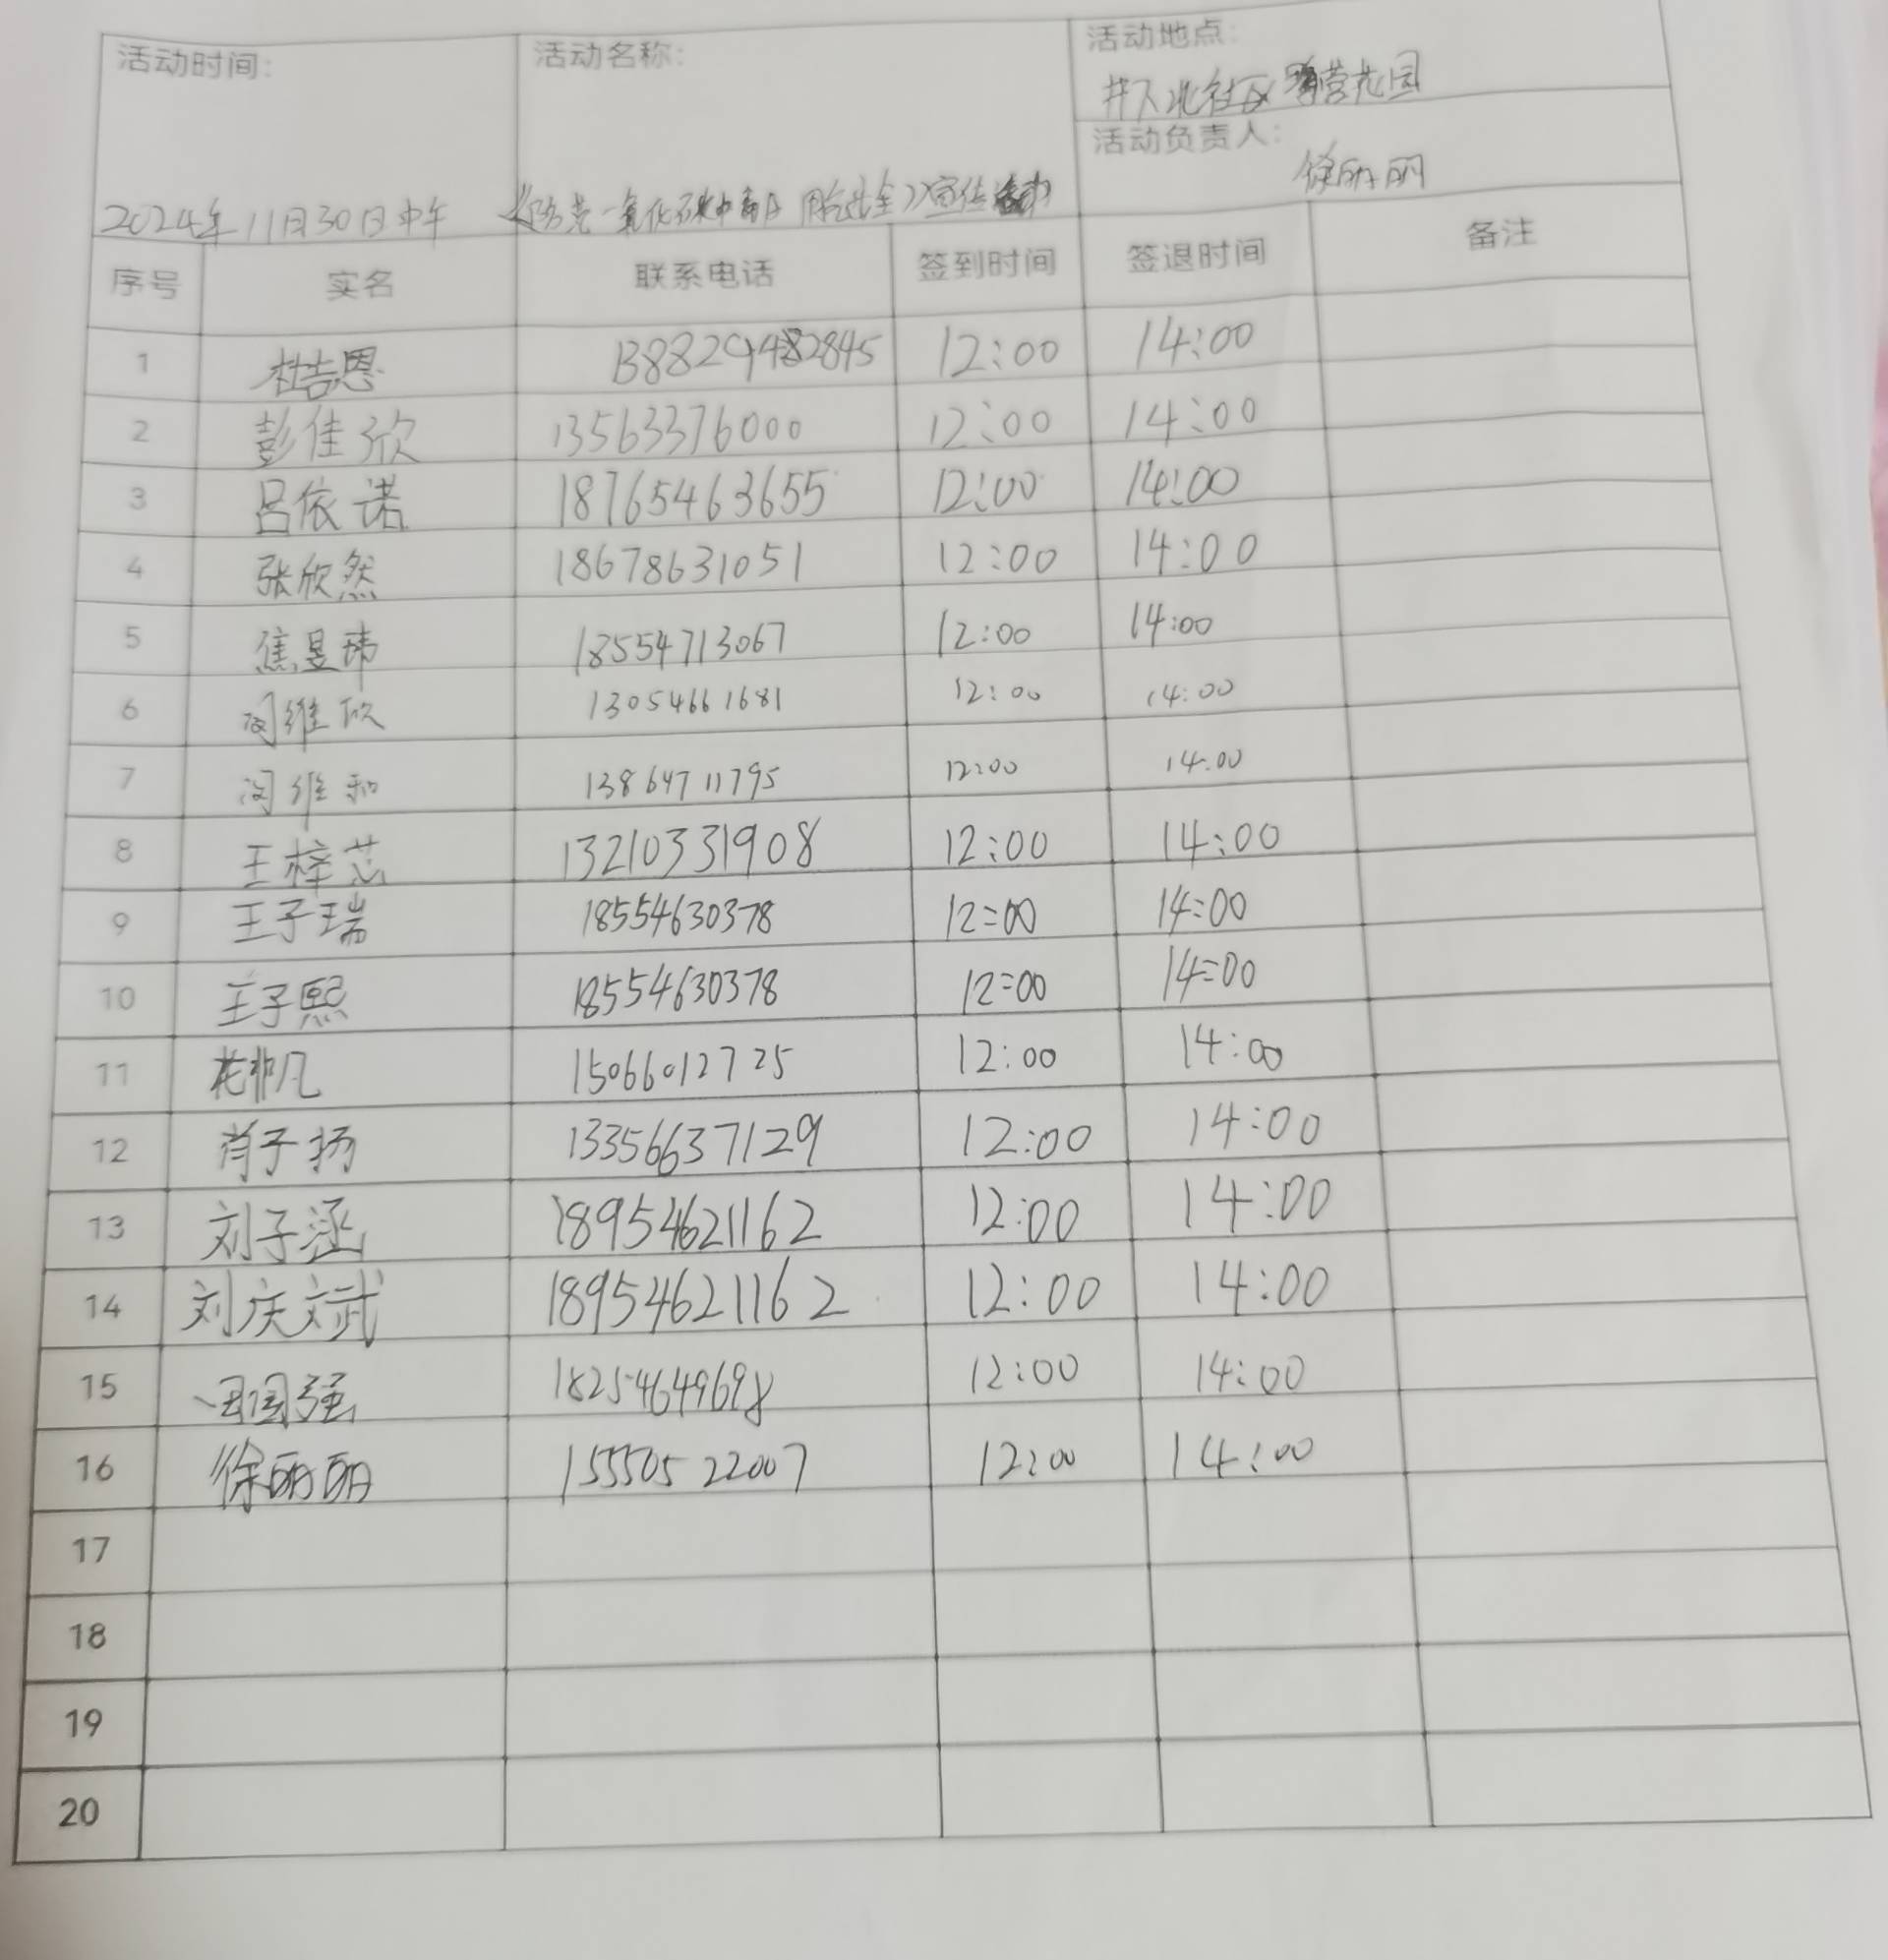 活动时间: 活动名称: 活动地点:
井下北社区 营花园
活动负责人:
徐丽丽
2024年11月30日中午 《防范一氧化碳中毒 用气安全》宣传活动
序号 实名 联系电话 签到时间 签退时间 备注
1 杜吉恩 12:00 14:00
2 彭佳欣 13563376000 12:00 14:00
3 吕依诺 18765463655 12:00 14:00
4 张欣然 18678631051 12:00 14:00
5 焦昱玮 18554713067 12:00 14:00
6 闵维欣 13054661681 12:00 14:00
7 闵维和 13864711795 12:00 14:00
8 王梓芯 13210331908 12:00 14:00
9 王子瑞 18554630378 12:00 14:00
10 王子熙 18554630378 12:00 14:00
11 花非凡 15066012725 12:00 14:00
12 肖子扬 13356637129 12:00 14:00
13 刘子涵 18954621162 12:00 14:00
14 刘庆文武 18954621162 12:00 14:00
15 国强 18254649698 12:00 14:00
16 徐丽丽 15550522007 12:00 14:00
17
18
19
20